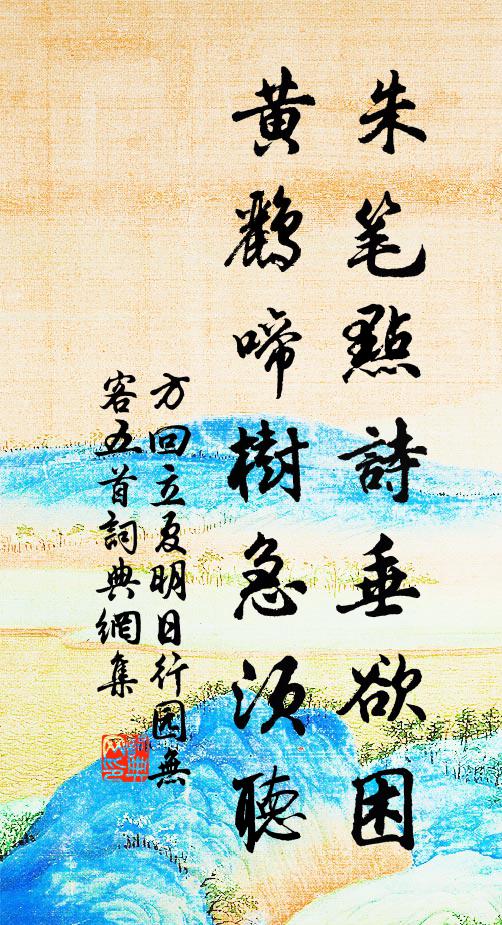 朱笔點詩垂欲困
黃鸝啼樹急須聽
方回立夏明日行園無
客五首詞典網集